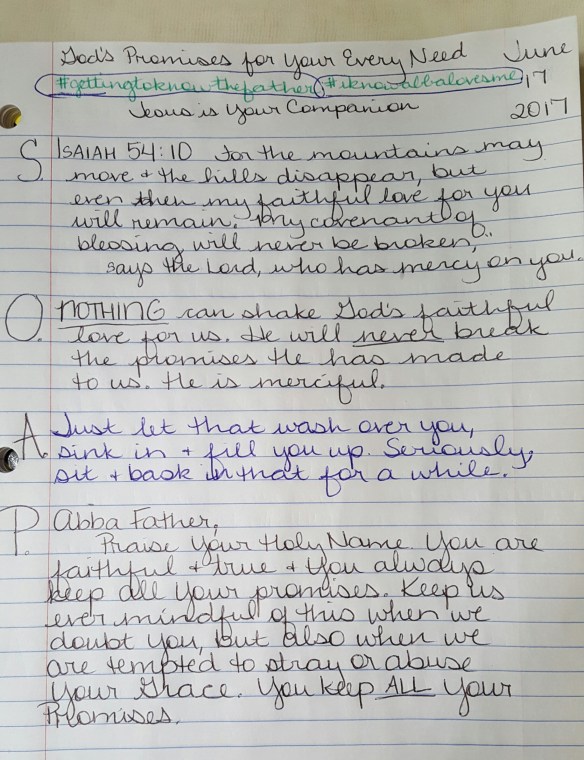 God's Promises for Your Every Need June
#gettingtoknowthefather #iknowabbalovesme 17
Jesus is Your Companion 2017
S. ISAIAH 54:10 For the mountains may
move & the hills disappear, but
even then my faithful love for you
will remain. My covenant of
blessing will never be broken,"
says the Lord, who has mercy on you.
O. NOTHING can shake God's faithful
love for us. He will never break
the promises He has made
to us. He is merciful.
A. Just let that wash over you,
sink in & fill you up. Seriously,
sit & bask in that for a while.
P. Abba Father,
Praise Your Holy Name. You are
faithful & true & You always
keep all Your promises. Keep us
ever mindful of this when we
doubt You, but also when we
are tempted to stray or abuse
Your Grace. You keep ALL Your
Promises.